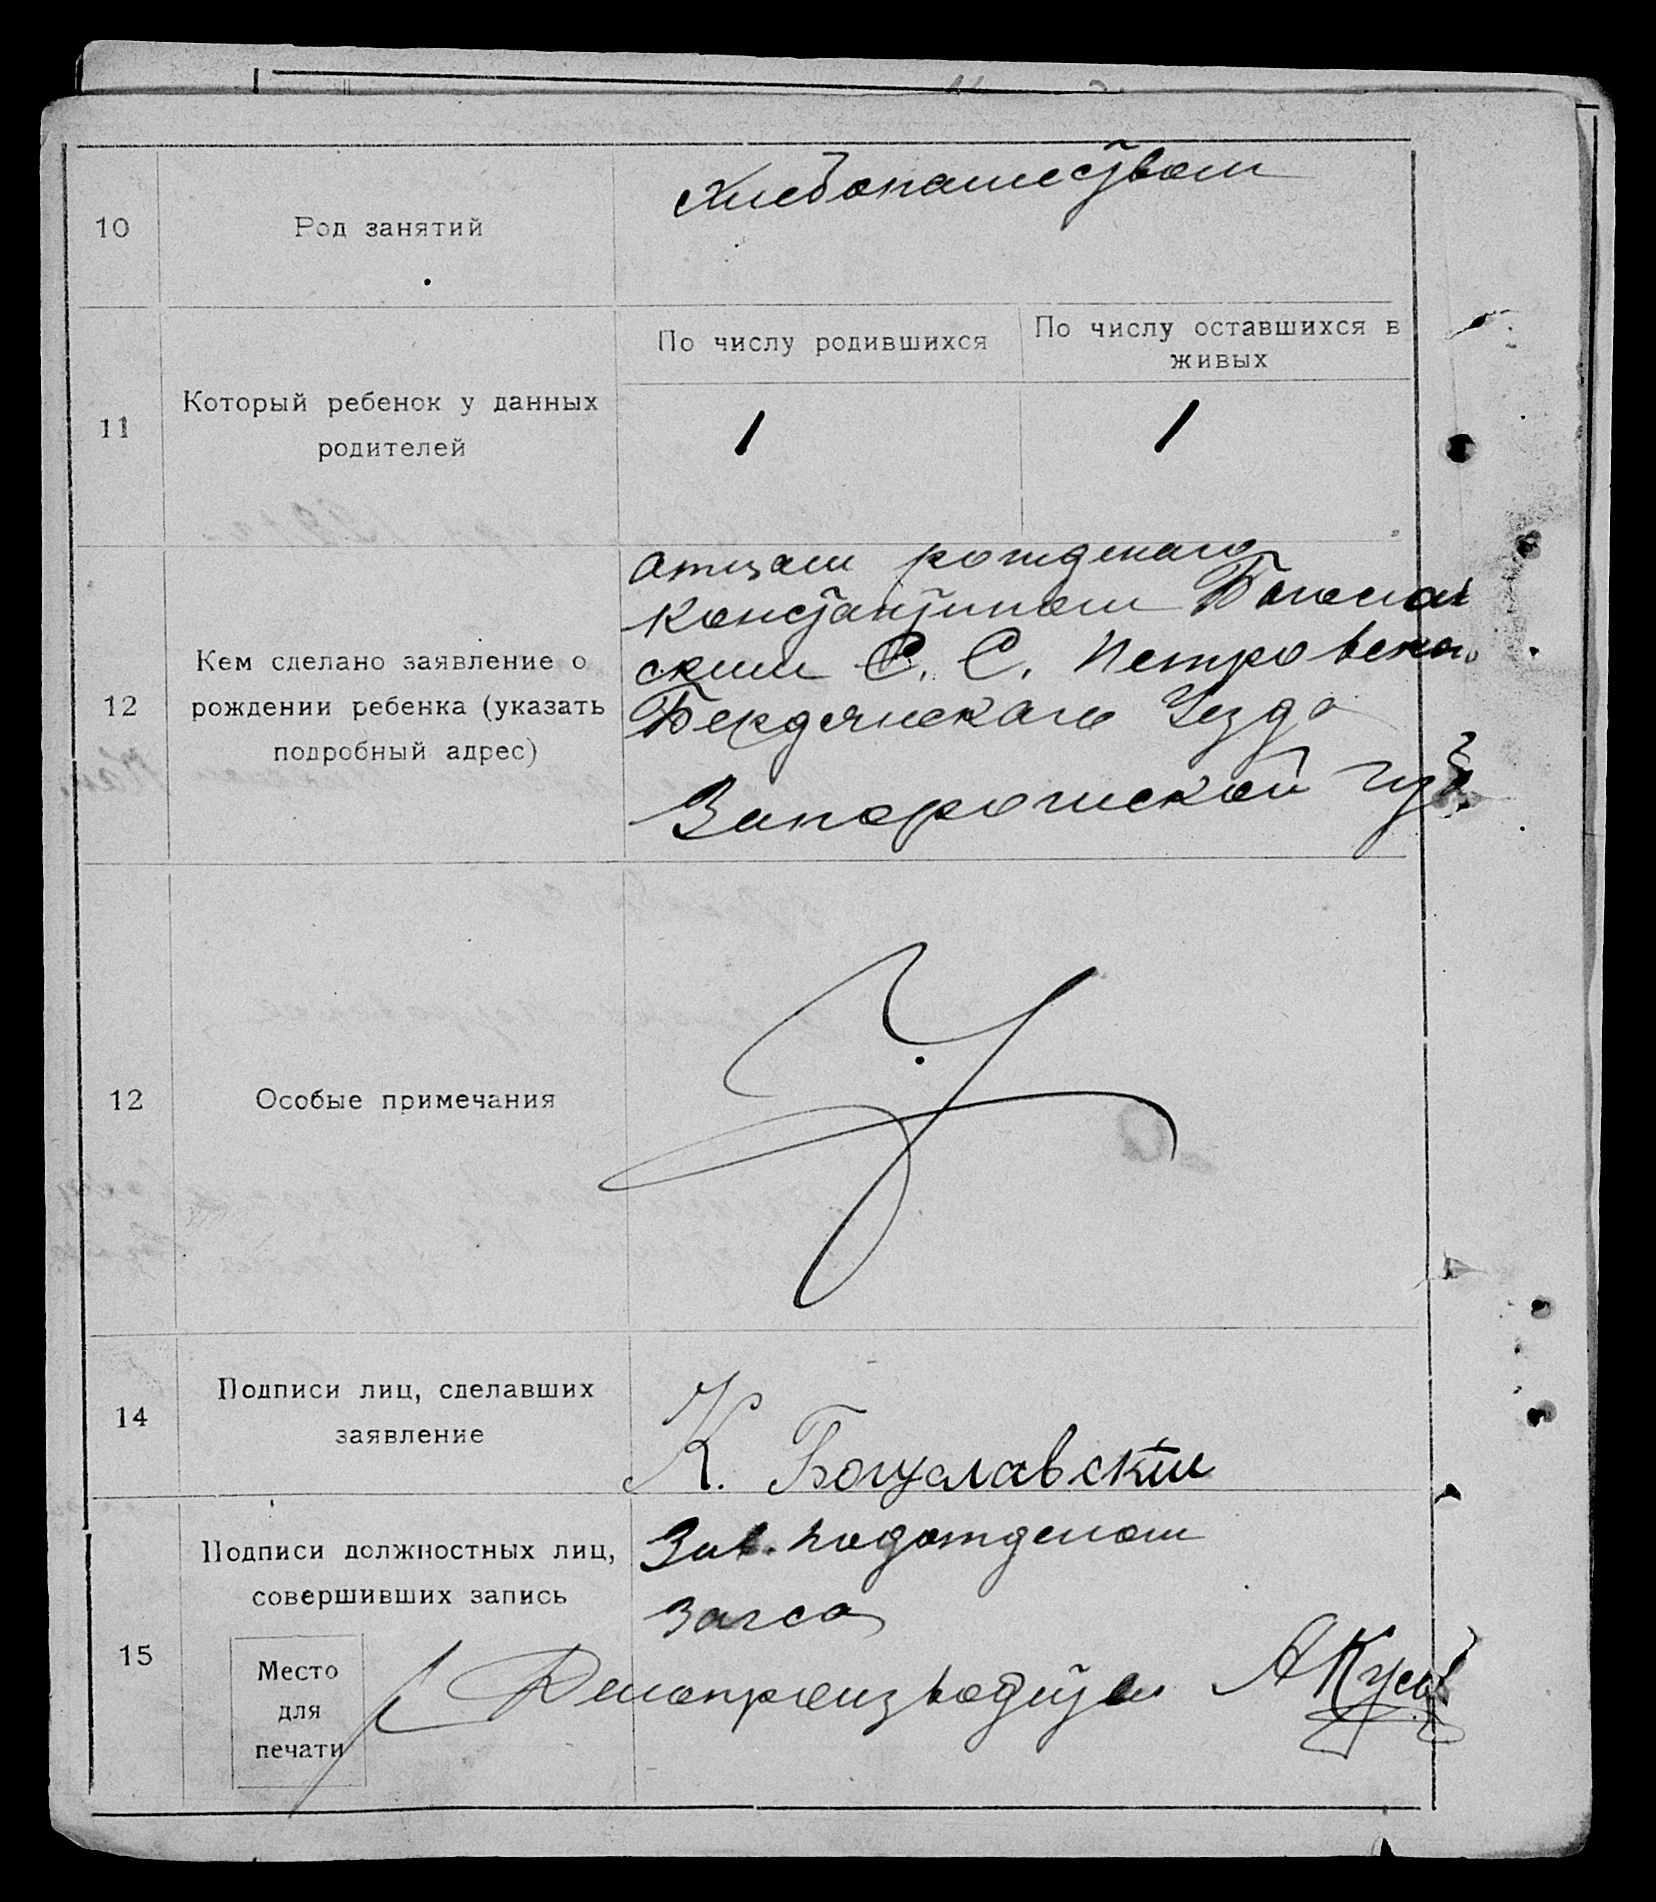 10
Род занятий
Хлебопашеством
11
Который ребенок у данных
родителей
По числу родившихся
По числу оставшихся в
живых
1
1
12
Кем сделано заявление о
рождении ребенка (указать
подробный адрес)
отцом рожденаго
Константином
ским С. С.
Бердянскаго Уезда
Запорожской губ.
12
Особые примечания
14
Подписи лиц, сделавших
заявление
К. Богуславский
15
Подписи должностных лиц,
совершивших запись
Место
для
печати
Зав. подотделом
Загса
Делопроизводитель